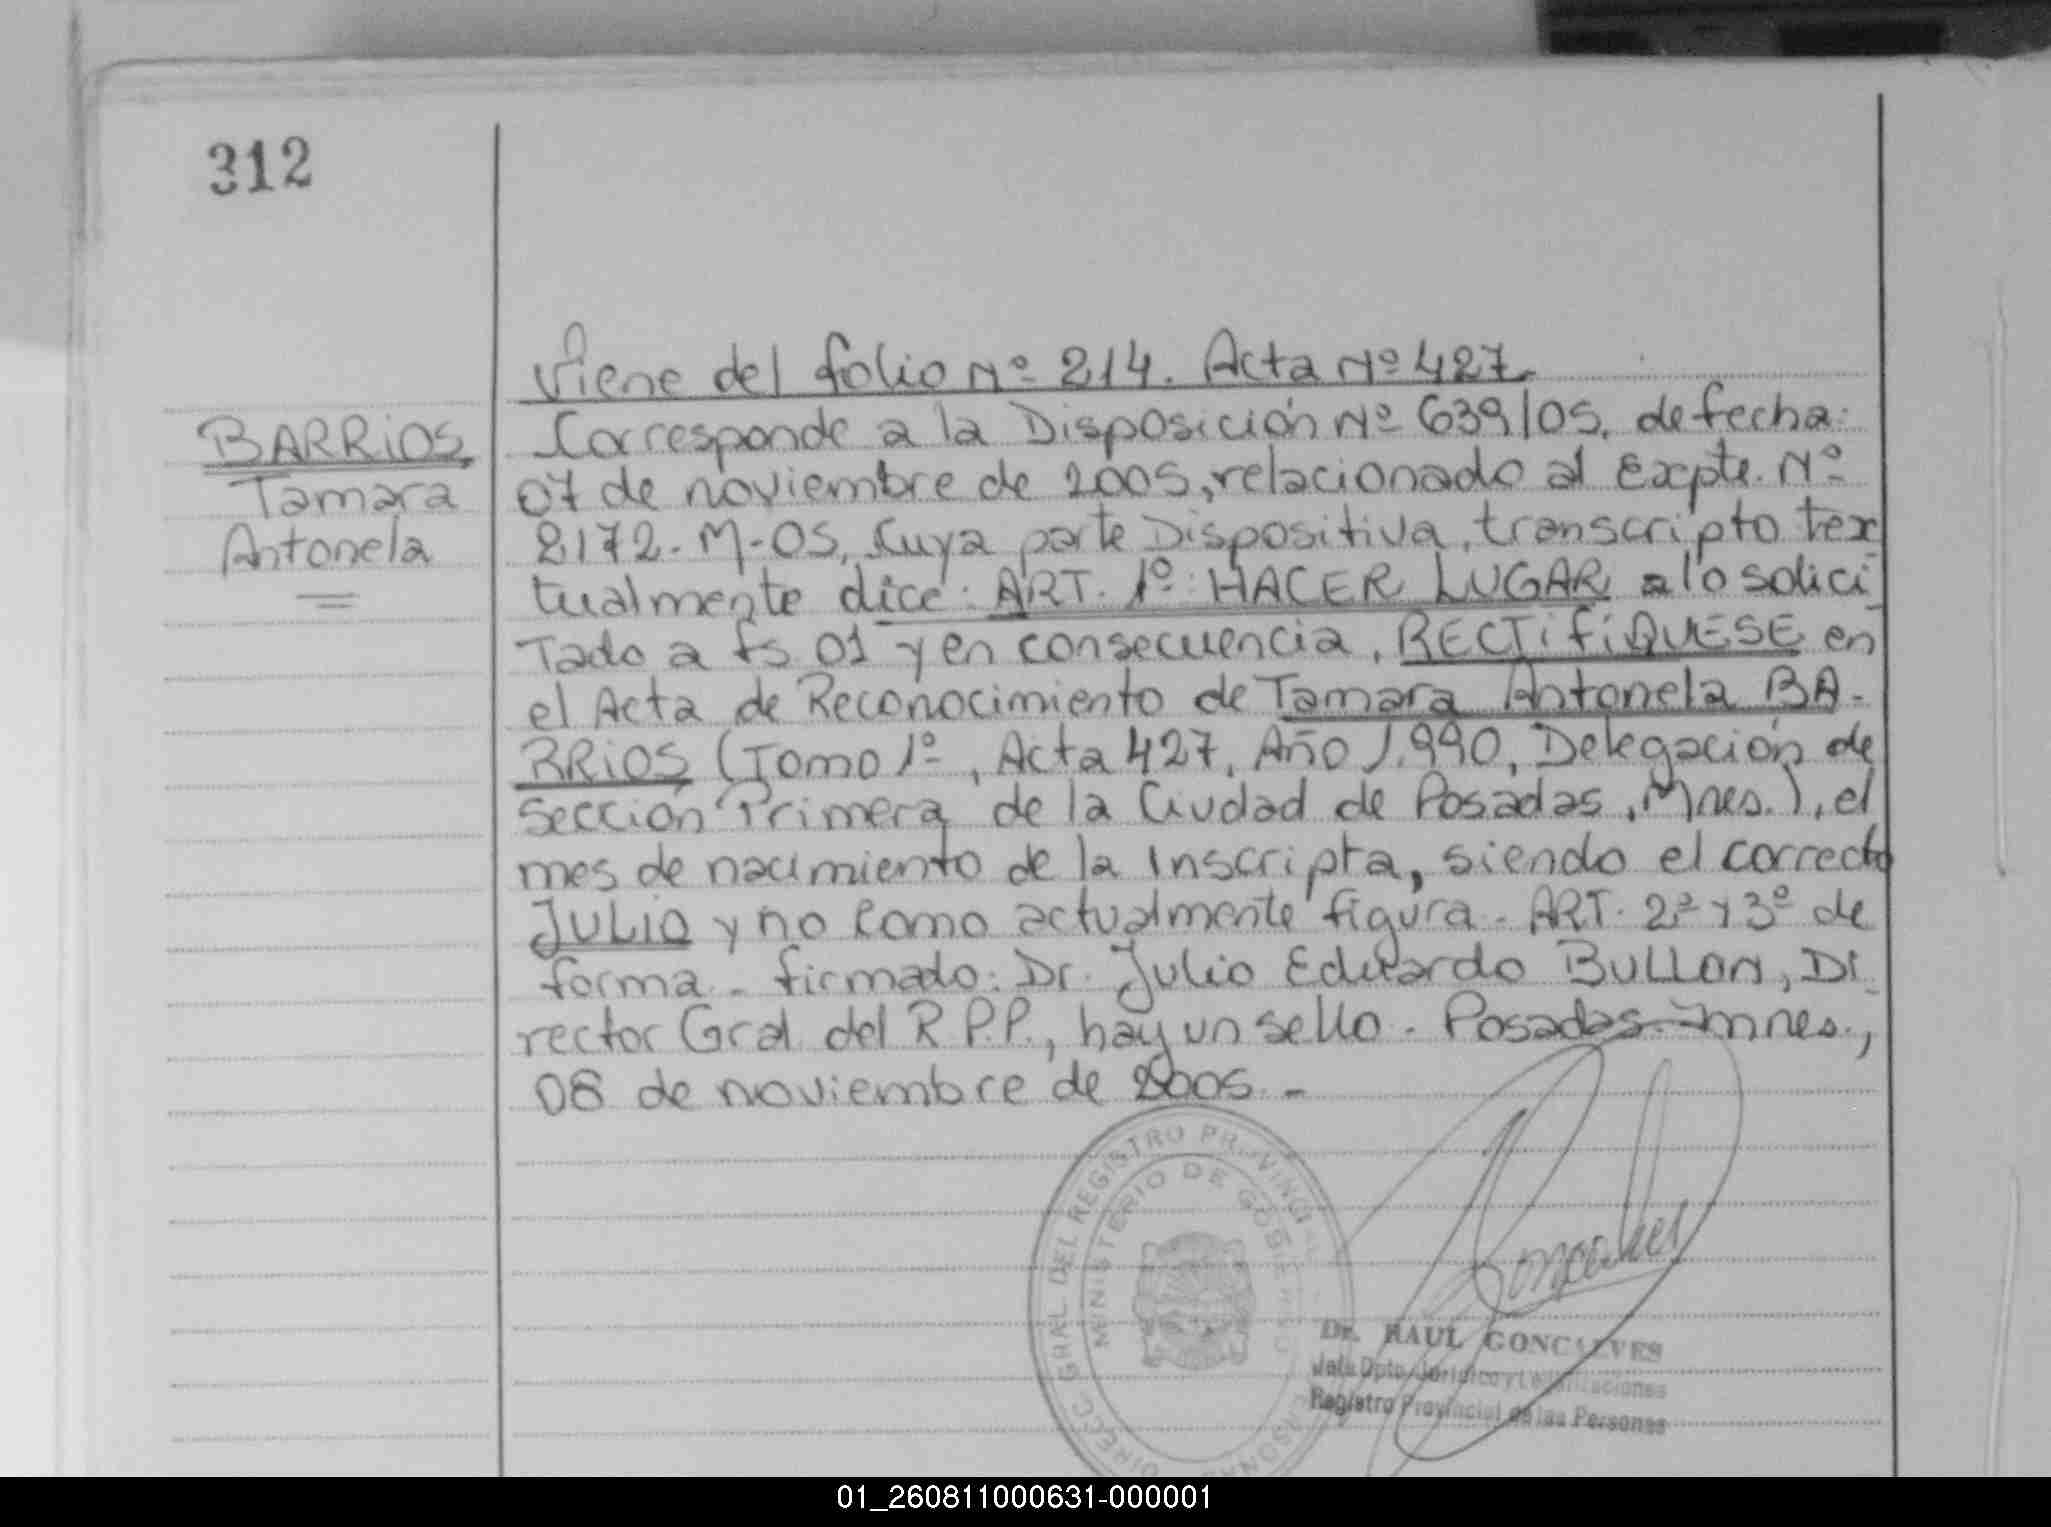 312
Viene del folio Nº 214. Acta Nº 427.
BARRiOS,
Tamara
Antonela
Corresponde a la Disposición Nº 639/05, de fecha:
07 de noviembre de 2005, relacionado al Expte. Nº
2172-M-05, Cuya parte Dispositiva, transcripto tex
tualmente dice: ART. 1º: HACER LUGAR a lo solici
Tado a fs 01 y en consecuencia, RECTIFIQUESE en
el Acta de Reconocimiento de Tamara Antonela BA-
RRiOS (Tomo 1º, Acta 427, Año 1.990, Delegación de
Sección Primera, de la Ciudad de Posadas, Mnes.), el
mes de nacimiento de la Inscripta, siendo el correcto
JULIO y no como actualmente figura - ART. 2º y 3º de
forma - firmado: Dr. Julio Eduardo BULLON, Di
rector Gral del R.P.P., hay un sello - Posadas - Mnes.,
08 de noviembre de 2005. -
DIRECC GRAL DEL REGISTRO PROVINCIAL
MINISTERIO DE GOBIERNO
Dr. RAUL GONCALVES
Jefe Dpto. Jurídico y
Registro Provincial de las Personas
01_260811000631-000001